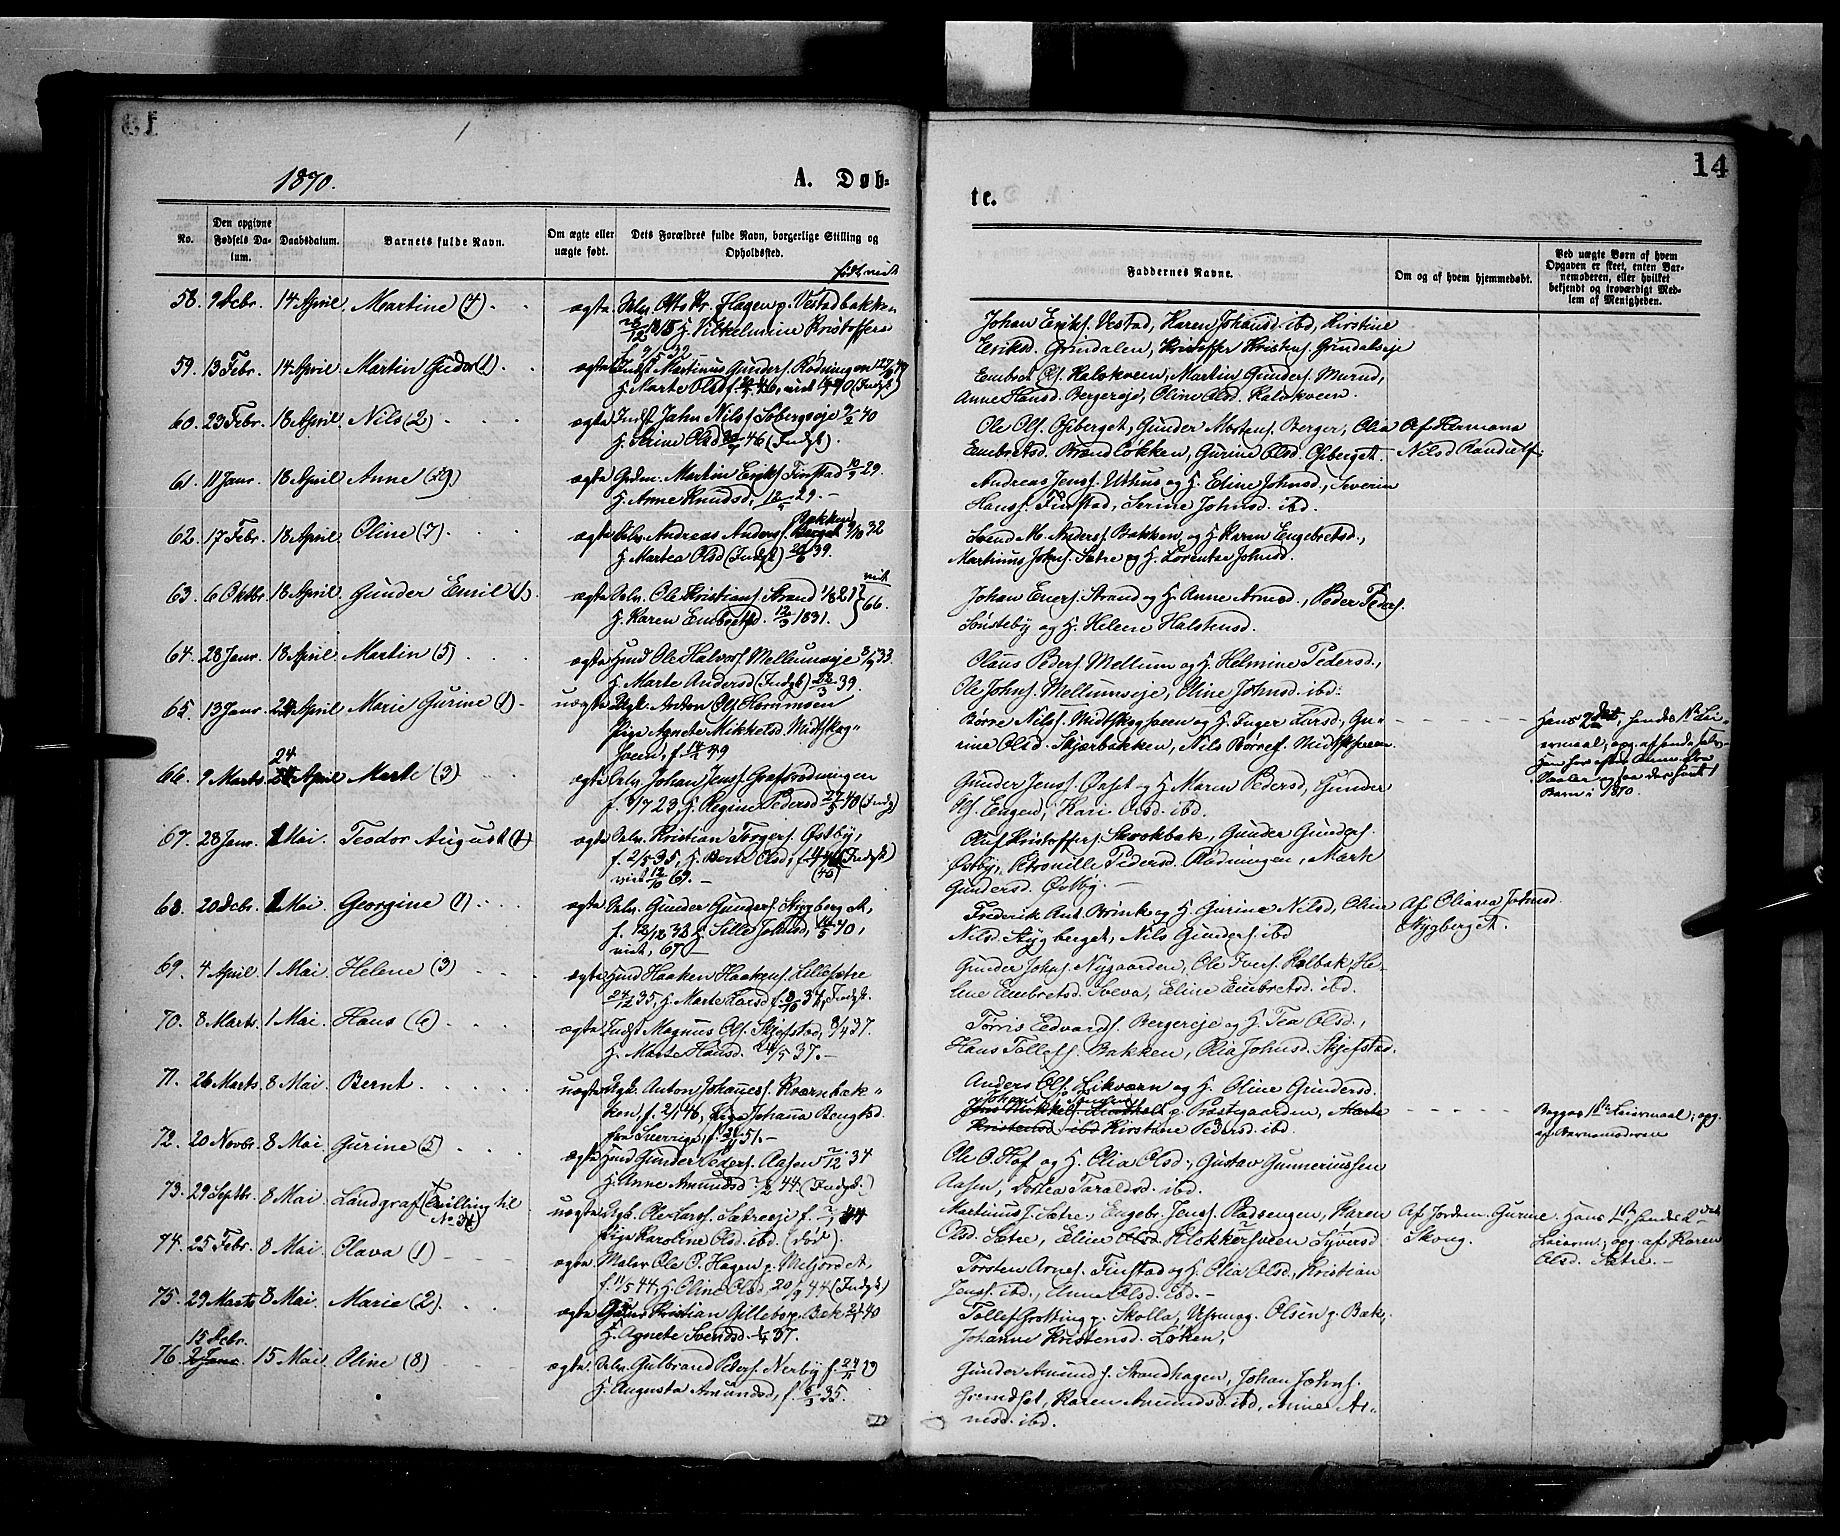 13
14
1870.
A. Døb-
te.
No.
Den opgivne Fødsels Da-tum.
Daabsdatum.
Barnets fulde Navn.
Om ægte eller uægte født.
Dets Forældres fulde Navn, borgerlige Stilling og Opholdssted.
født vidt
Faddernes Navne.
Om og af hvem hjemmedøbt.
Ved uægte Børn af hvem Opgaven er skeet, enten Bar-nemoderen, eller hvilket bekjendt og troværdigt Med-lem af Menigheden.
58. 9 Febr. 14 April Martine (4) ægte Vestadbakken
Vilhelmine Kristoffersd
Johan Eriks. Vestad, Karen Johansd. ibd, Kirstine
Eriksd. Grindalen, Kristoffer Kristens. Grindalseje
59. 13 Febr. 14 April Martin Gudor (1) ægte Inds. Martinus Gunders. Rødningen
H. Marte Olsd. f. 46, (Indgt)
Embret Ols. Halskveen, Martin Gunders. Murud,
Anne Hansd. Bergereje, Oline Olsd. Halskveen.
60. 23 Febr. 18 April Nils (2) ægte Indst. John Nils. Sobergseje 40
H. Serine Olsd 46 (Indgt).
Ole Ols. Osberget, Gunder Mortens. Berger, Olia
Embretsd. Brændløkken, Gurine Olsd. Osberget.
Af Formand
Nils Randulf.
61. 11 Janr. 18 April Anne (29) ægte Martin Eriks. Finstad 29.
H. Anne Knudsd, 29.
Andreas Jens. Uthus og H. Eline Johnsd., Severin
Hans. Finstad, Serine Johnsd. ibd.
62. 17 Febr. 18 April Oline (7) ægte Selv. Andreas Anders. Bakken 9/10 32
H. Martea Olsd (Indgt) 39.
Svend M. Anders. Bakken og H. Karen Engebretsd.,
Martinus Johns. Sætre og H. Lorentse Johnsd.
63. 6 Oktbr. 18 April Gunder Emil (1). ægte Selv. Ole Kristians. Strand 1/8 21 vidt
H. Karen Embretsd. 12/3 1831. 66.
Johan Evers. Strand og H. Anne Arnesd., Peder Peders.
Sønsteby og H. Helene Halstensd.
64. 28 Janr. 18 April Martin (5) ægte Husmd Ole Halvors. Mellumseje 33.
H. Marte Andersd (Indgt) 22/3 39.
Olaus Peders. Mellum og H. Helmine Pedersd.,
Ole Johns. Mellumseje, Eline Johnsd. ibd.
65. 13 Janr. 24 April Marie Gurine (1) uægte Ugk. Anton Ols. Hornmoen
Pige Agnete Mikkelsd. Midtskog-
sveen, f. 49
Børre Nils. Midtskogsveen og H. Inger Larsd., Gu-
rine Olsd. Skjærbakken, Nils Børres. Midtskogsveen
Hans 2det, hendes 1ste Lei-
ermaal; opg. af hende selv.
66. 9 Marts 24 April Marte (3) ægte Selv. Johan Jens. Grafsrødningen
f. 7/7 23 H. Regine Pedersd 27/5 40 (Indgt)
Gunder Jens. Ørset og H. Maren Pedersd., Gunder
Ols. Engen, Kari Olsd. ibd.
Barn i 1870.
67. 28 Janr. 1 Mai. Teodor August (1) ægte Selv. Kristian Torgers. Østby,
f. 2/5 35, H. Berte Olsd, f. (Indgt)
vidt 12/10 69.
Oluf Kristoffers. Skrokbak, Gunder Gunders.
Østby, Petronille Pedersd. Rødningen, Marte
Gundersd. Østby.
68. 20 Febr. 1 Mai Georgine (1) ægte Selv. Gunder Gunders. Stygberget,
f. 12/12 38 H. Sille Johnsd, 16/5 40,
vidt, 67
Frederik Ant. Brink og H. Gurine Nilsd., Oline
Nilsd. Stygberget, Nils Gunders. ibd
Af Oliava Johnsd.
Stygberget.
69. 4 April 1 Mai. Helene (3) ægte Husmd Haaken Haakens. Lillesætre
24/12 35, H. Marte Larsd. f. 37, Indgt.
Gunder Johns. Nygaarden, Ole Ivers. Holbak, He-
lene Embretsd. Sveva, Eline Embretsd. ibd.
70. 8 Marts. 1 Mai. Hans (6) ægte Indst. Magnus Ols. Skjefstad, 37.
H. Marte Hansd. 24/5 37.
Tørris Edvards. Bergereje og H. Tea Olsd.,
Hans Tollefs. Bakken, Olia Johnsd. Skjefstad.
71. 26 Marts 8 Mai. Bernt. uægte Ugk. Anton Johannes. Kværnbæk-
ken, f. 2/1 46, Pige Johanna Bengtsd.
fra Sverrige, f. 51.
Anders Ols. Likværn og H. Oline Gundersd.
p. Præstegaarden,
ibd Kirstine Pedersd. ibd.
Begges 1ste Leiermaal; opg.
af Barnemoderen
72. 20 Novbr. 8 Mai. Gurine (5) ægte Husmd Gunder Peders. Aasen 34
H. Anne Amundsd 44. (Indgt.)
Ole O. Hof og H. Olia Olsd., Gustav Gunneriussen
Aasen, Dortea Taraldsd. ibd.
73. 29 Septbr. 8 Mai. Landgraf (Tvilling til
No 34) uægte Ugk. Ole Lars. Sætreeje f. 44
Pige Karoline Olsd. ibd. (død).
Martinus J. Sætre, Engebr. Jens. Pladsengen, Karen
Olsd. Sætre, Eline Klokkersveen Syversd
Af Jordem. Gurine
Skoug.
Hans 1ste, hendes 2det
Leierm; opg. af Karen
Olsd. Sætre.
74. 25 Febr. 8 Mai. Olava (1) ægte Maler Ole O. Hagen p. Meljordet,
f. 11/5 44, H. Oline Olsd, 20/9 44 (Indgt)
Torsten Arnes. Finstad og H. Olia Olsd., Kristian
Jens. ibd., Anne Olsd. ibd.
75. 29 Marts 8 Mai. Marie (2). ægte Kristian Gillebo p. Bæk 40
H. Agnete Svendsd. 37.
Tollef Grotting p. Skolla, Olsen p. Bæk,
Johanne Kristensd. Løken,
76. 15 Febr. 15 Mai Oline (8) ægte. Selv. Gulbrand Peders. Nerby f. 24/11 19
H. Augusta Amundsd, f. 35.
Gunder Amunds. Strandhagen, Johan Johns.
Grændset, Karen Amundsd. ibd., Anne Ar-
nesd. ibd.